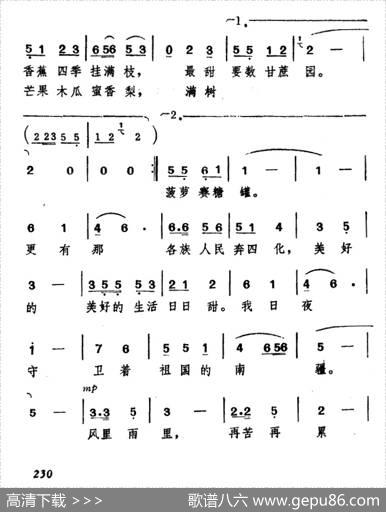 ⌒1.
5 1 2 3 | 6 56 5 3 | 0 2 3 | 5 5 1 2 | 2 — |
香蕉 四季 挂满 枝, 最 甜 要数 甘蔗 园。
芒果 木瓜 蜜香 梨, 满 树
⌒2.
( 2 23 5 5 | 1 2 2 )
2 0 | 0 0 :‖ 5 5 6 1 | 1 — | 1 — |
菠萝 赛糖 罐。
6 1 | 4 6 · | 6·6 5 6 | 5 1 4 | 3 5 |
更 有 那 各族 人民 奔四 化, 美 好
3 — | 3 5 5 5 3 | 5 1 2 | 6 1 | 4 6 · |
的 美好的 生活 日日 甜。 我 日 夜
1 — | 7 6 | 5 5 1 | 4 6 56 | 5 — |
守 卫 着 祖国 的 南 疆。
mp
5 — | 3·3 5 | 3 — | 2·2 5 | 2 — |
风里 雨 里, 再苦 再 累
230
高清下载 >>>
歌谱八六 www.gepu86.com